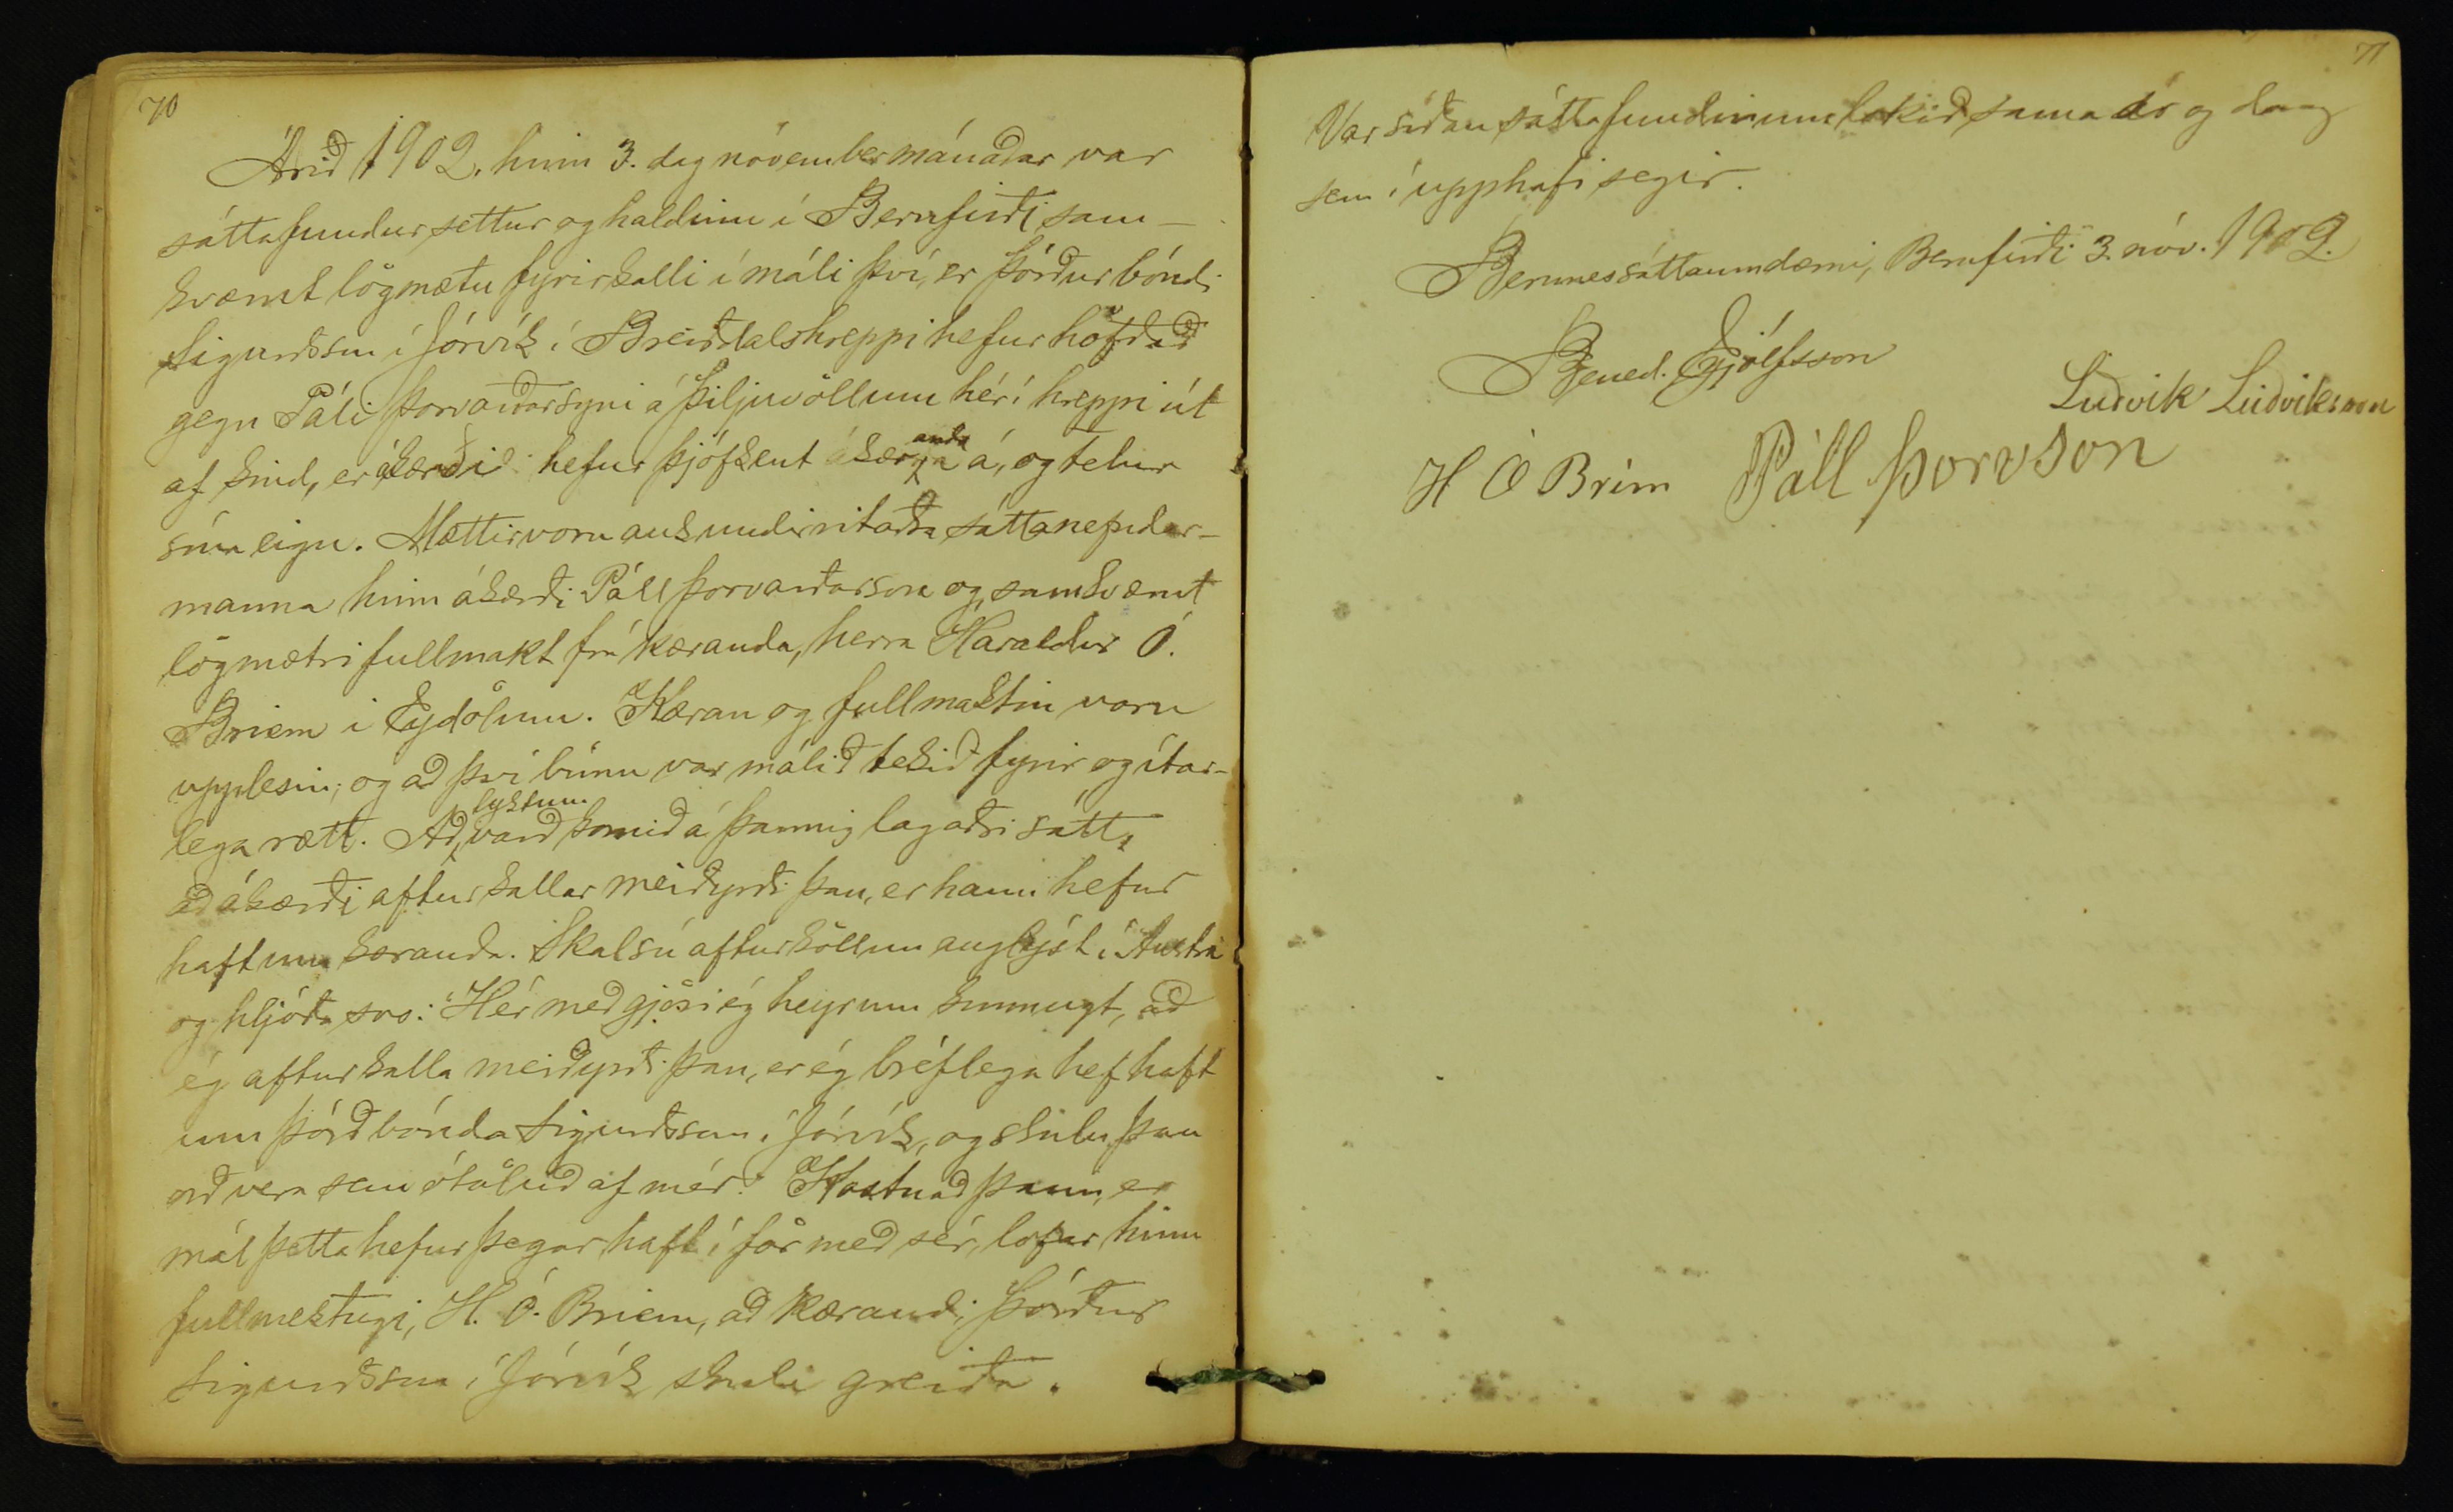 70
Árið 1902, hinn 3. dag nóvembermánaðar var
sáttafundur settur og haldinn í Berufirði sam-
kvæmt lögmætu fyrirkalli í máli því, er Þórður bóndi
Sigurðsson í Jórvík í Breiðdalshreppi hefur höfðað
gegn Páli Þorvarðarsyni á Þiljuvöllum hér í hreppi út
af kind, er ákærði hefur þjófkent kæranda á, og telur
sína eign. Mættir voru auk undirritaðra sáttanefndar-
manna hinn ákærði Páll Þorvarðarson og, samkvæmt
lögmætri fullmakt frá kæranda, herra Haraldur Ó.
Briem í Eydölum. Kæran og fullmaktin voru
upplesin; og að því búnu var málið tekið fyrir og ítar-
lega rætt. Að lyktum varð komið á þannig lagaðri sátt,
að ákærði afturkallar meiðyrði þau, er hann hefur
haft um kæranda. Skal sú afturköllun auglýst í Austra
og hljóða svo: "Hér með gjöri ég heyrum kunnugt, að
ég afturkalla meiðyrði þau, er ég bréflega hef haft
um Þórð bónda Sigurðsson í Jórvík, og skulu þau
orð vera sem ótöluð af mér." Kostnað þann, er
mál þetta hefur þegar haft í för með sér, lofar hinn
fullmektugi, H. Ó. Briem, að kærandi, Þórður
Sigurðsson í Jórvík skuli greiða.
71
Var síðan sáttafundinum lokið sama ár og dag
sem í upphafi segir.
Berunessáttaumdæmi, Berufirði 3. nóv. 1902.
Bened. Eyjólfsson
Lúðvík Lúðvíksson
H Ó Briem Páll Þorvson